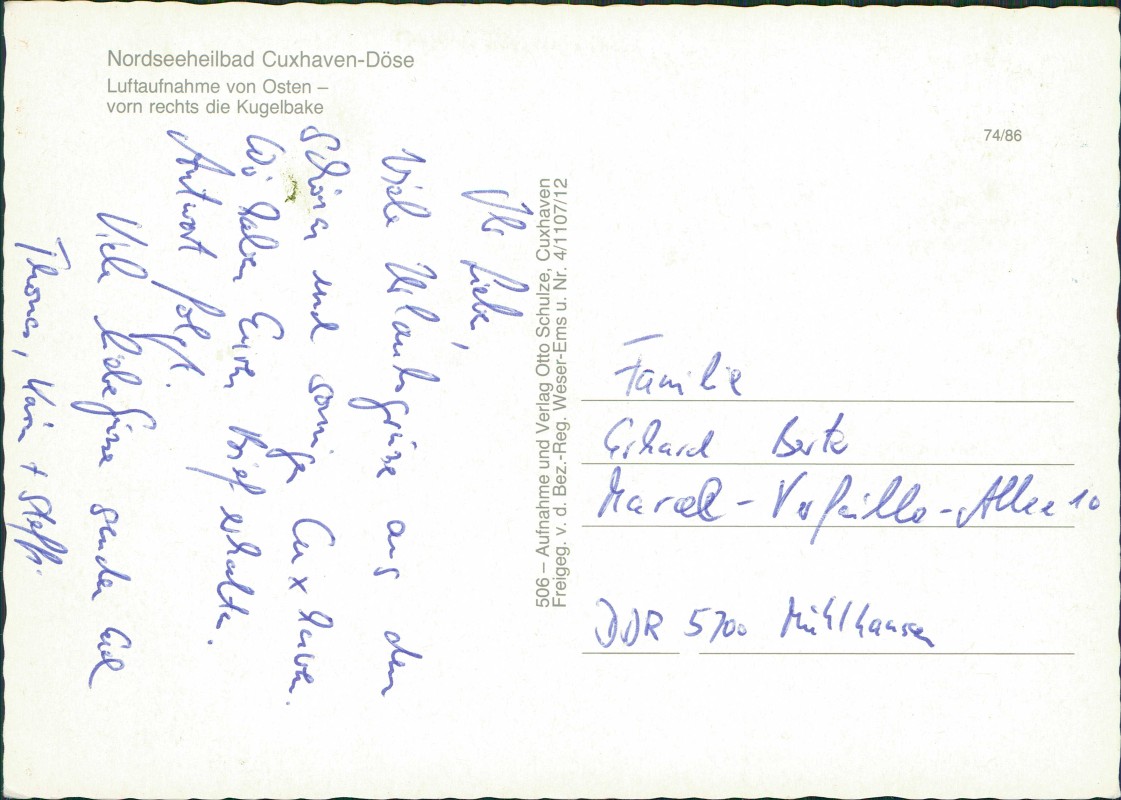 Nordseeheilbad Cuxhaven-Döse
Luftaufnahme von Osten –
vorn rechts die Kugelbake
74/86
Ihr Lieben,
Viele Urlaubsgrüße aus dem
schönen und sonnigen Cuxhaven.
Wir haben Euren Brief erhalten.
Antwort folgt.
Viele liebe Grüße senden Euch
Thomas, Karin + Steffi.
506 – Aufnahme und Verlag Otto Schulze, Cuxhaven
Freigeg. v. d. Bez.-Reg. Weser-Ems u. Nr. 4/1107/12
Familie
Erhard
Marcel-Verfaille-Allee 10
DDR 5700 Mühlhausen